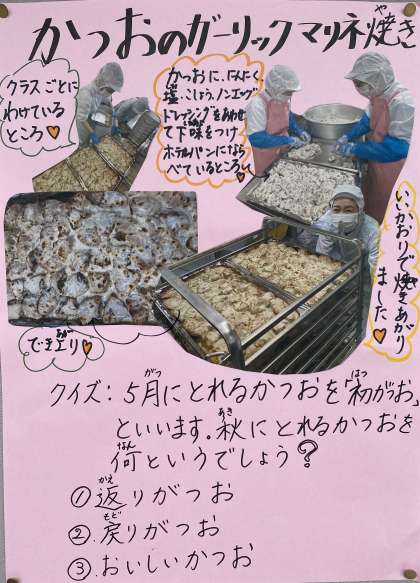 かつおのガーリックマリネ焼き
や
クラスごとに
わけている
ところ♡
かつおに、にんにく、
塩、こしょう、ノンエッグ
ドレッシングをあわせ
て下味をつけ
ホテルパンになら
べているところ
いいかおりで焼きあがり
ました♡
でき上り♡
あが
クイズ：5月にとれるかつおを「初がつお」
がつ
はつ
といいます。秋にとれるかつおを
あき
何というでしょう？
なん
①返りがつお
かえ
②戻りがつお
もど
③おいしいかつお